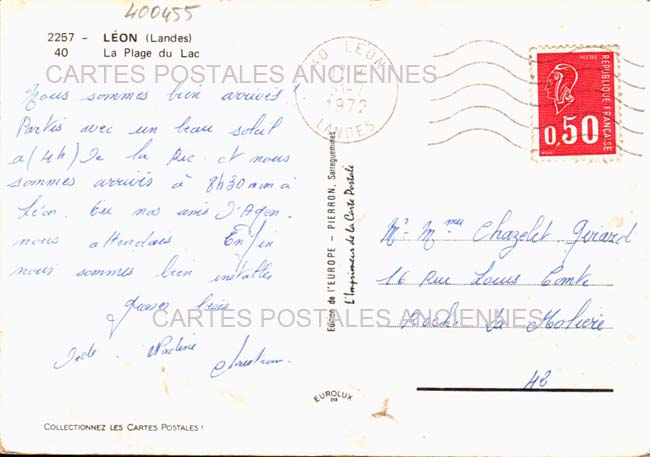 400455
2257 - LÉON (Landes)
40 La Plage du Lac
CARTES POSTALES ANCIENNES
Nous sommes bien arrivés !
Partis avec un beau soleil
à (4h) de la Ric. et nous
sommes arrivés à 8h30 mm à
Léon. Où nos amis d'Agen.
nous attendais Enfin
nous sommes bien installés
Grosses bises
CARTES POSTALES ANCIENNES
Nadine Christian.
COLLECTIONNEZ LES CARTES POSTALES !
40 LEON
1972
LANDES
POSTES
RÉPUBLIQUE FRANÇAISE
0,50
Edition de l'EUROPE - PIERRON, Sarreguemines
L'Imprimeur de la Carte Postale
EUROLUX
Mr. Mme Chazelet Gérard
16 Rue Louis Comte
Roche La Molière
42